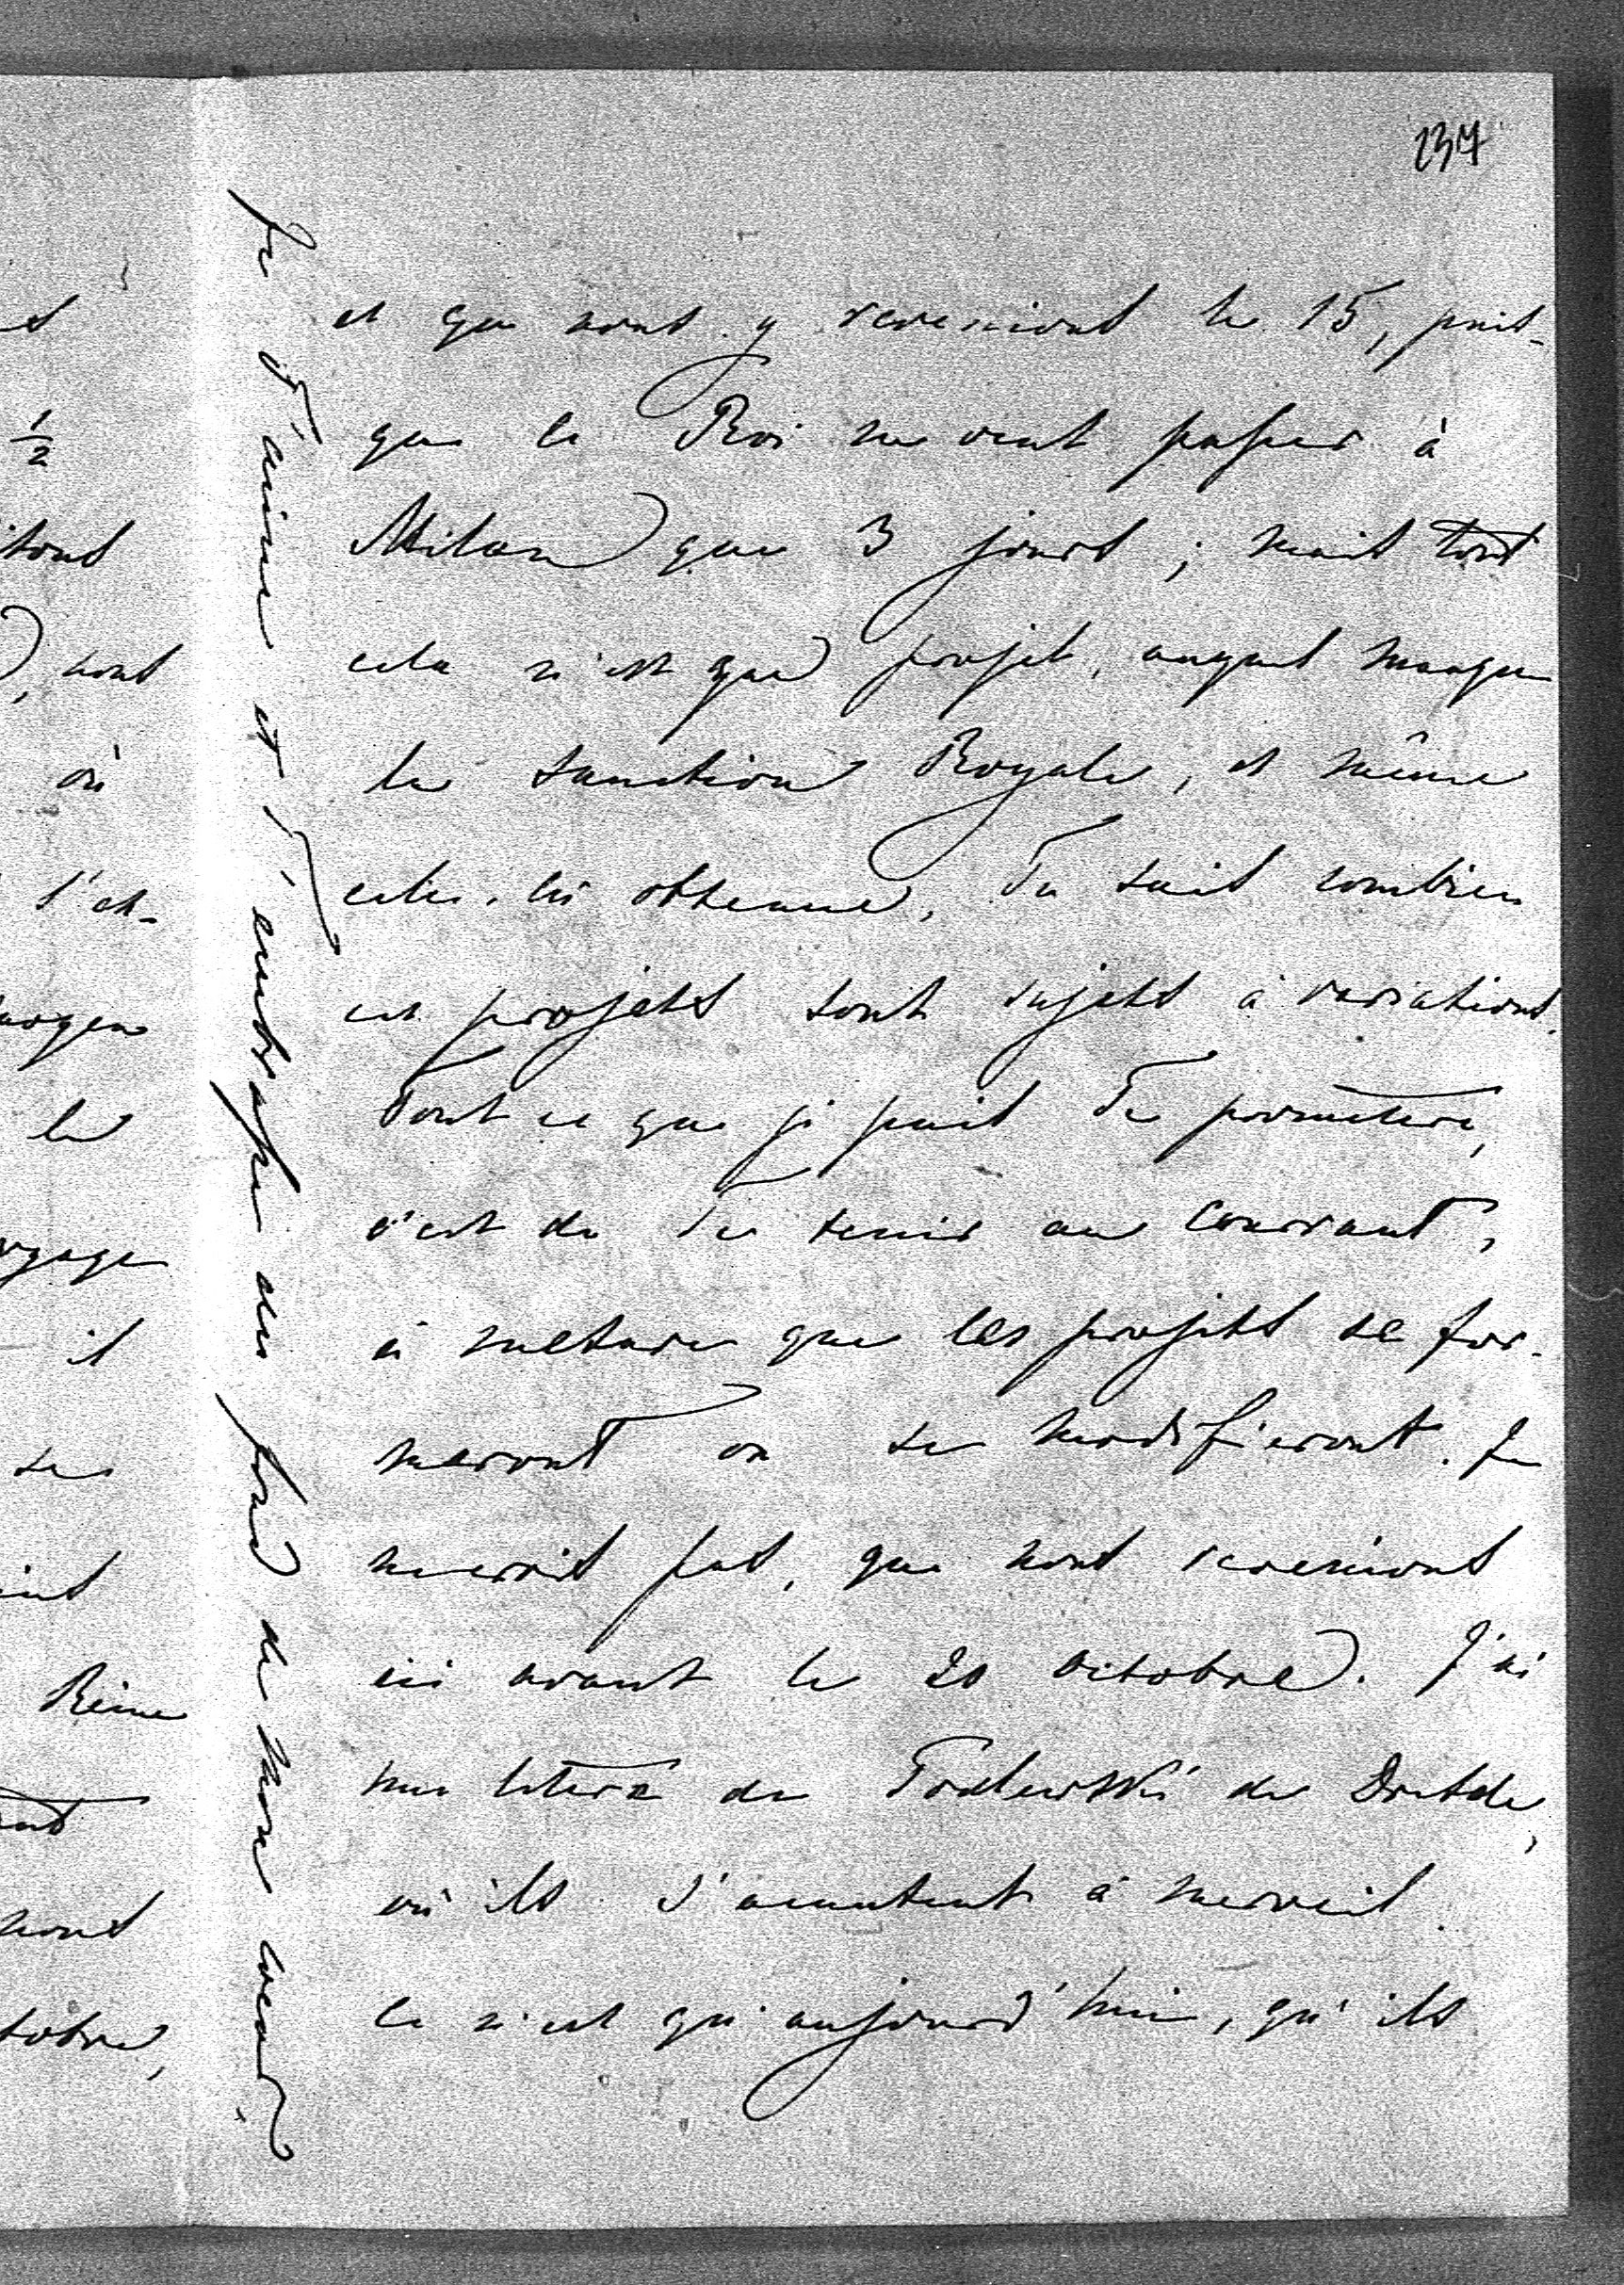 237
et que nous y revenions le 15, puis-
que le Roi ne veut passer à
Milan que 3 jours ; mais tout
cela n'est que projet, auquel manque
la sanction Royale, et même
celle-ci obtenue, Tu sais combien
ces projets sont sujets à variations.
Tout ce que je puis Te promettre,
c'est de Te tenir au courrant,
à mesure que les projets se for-
meront ou se modifieront. Je
ne crois pas, que nous revenions
ici avant le 20 octobre. J'ai
une lettre de de Dresde,
où ils s'amusent à merveil.
Ce n'est qu'aujourd'hui, qu'ils
Je T'aime et T'embrasse du fond de mon cœur.
½
nous
où
s'at-
le
il
se
Reine
nous